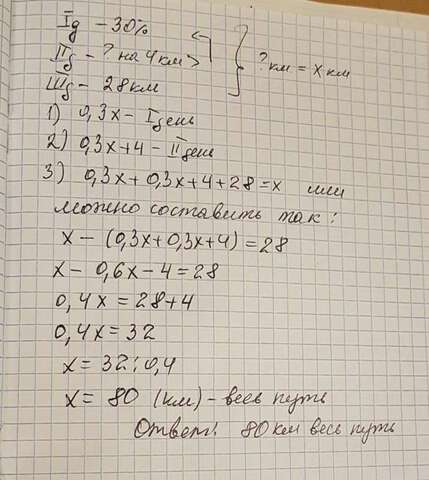 Iд – 30%
IIд – ? на 4 км >
IIIд – 28 км
? км = x км
1) 0,3x – I день
2) 0,3x+4 – II день
3) 0,3x+0,3x+4+28=x или
можно составить так:
x – (0,3x+0,3x+4)=28
x – 0,6x – 4=28
0,4x=28+4
0,4x=32
x=32:0,4
x= 80 (км) – весь путь
Ответ: 80 км весь путь